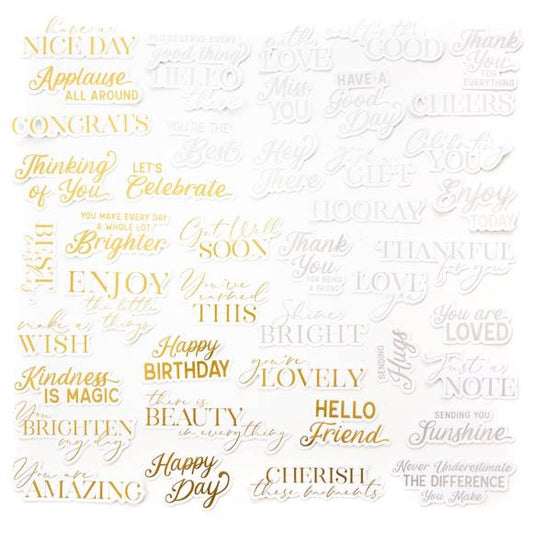 have a
NICE DAY
Applause
ALL AROUND
CONGRATS
Thinking
of You
LET'S
Celebrate
YOU MAKE EVERY DAY
A WHOLE LOT
Brighter
Get Well
SOON
ENJOY
the little
things
You've
earned
THIS
make a
WISH
Happy
BIRTHDAY
you're
LOVELY
Kindness
IS MAGIC
there is
BEAUTY
in everything
HELLO
Friend
You
BRIGHTEN
my day
You are
AMAZING
Happy
Day
CHERISH
these moments
YOU DESERVE EVERY
good thing
HELLO
Miss
YOU
HAVE A
Good
Day
GOOD
Thank
You
FOR
EVERYTHING
CHEERS
YOU'RE THE
Best
Hey
There
GIFT
YOU
HOORAY
Enjoy
TODAY
Thank
You
FOR BEING
A FRIEND
THANKFUL
for you
LOVE
you
Shine
BRIGHT
You are
LOVED
SENDING
Hugs
Just a
NOTE
SENDING YOU
Sunshine
Never Underestimate
THE DIFFERENCE
You Make